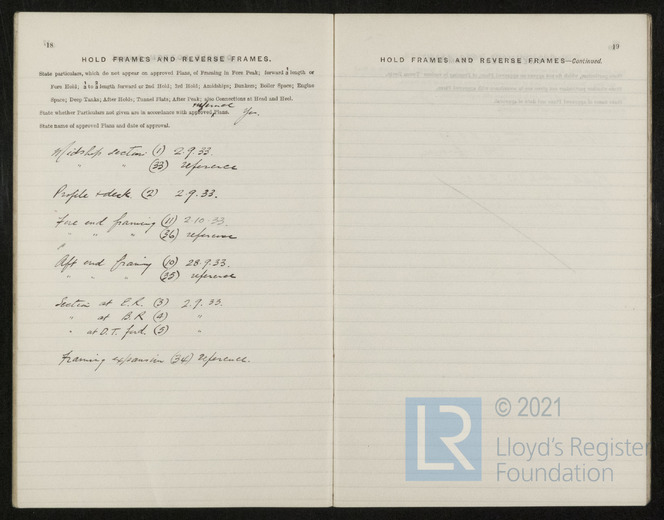 18
HOLD FRAMES AND REVERSE FRAMES.
State particulars, which do not appear on approved Plans, of Framing in Fore Peak; forward ¼ length or
Fore Hold; ¼ to ⅗ length forward or 2nd Hold; 3rd Hold; Amidships; Bunkers; Boiler Space; Engine
Space; Deep Tanks; After Holds; Tunnel Flats; After Peak; also Connections at Head and Heel.
reference
State whether Particulars not given are in accordance with approved Plans. Yes.
State name of approved Plans and date of approval.
Midship section (1) 2.9.33.
" " (33) reference
Profile & deck (2) 2.9.33.
Fore end framing (11) 2.10.33.
" " " (36) reference
Aft end framing (10) 28.9.33.
" " " (35) reference
Section at E.R. (3) 2.9.33.
" at B.R. (4) "
" at D.T. ford. (5) "
Framing expansion (34) reference.
19
HOLD FRAMES AND REVERSE FRAMES—Continued.
LR
© 2021
Lloyd's Register
Foundation